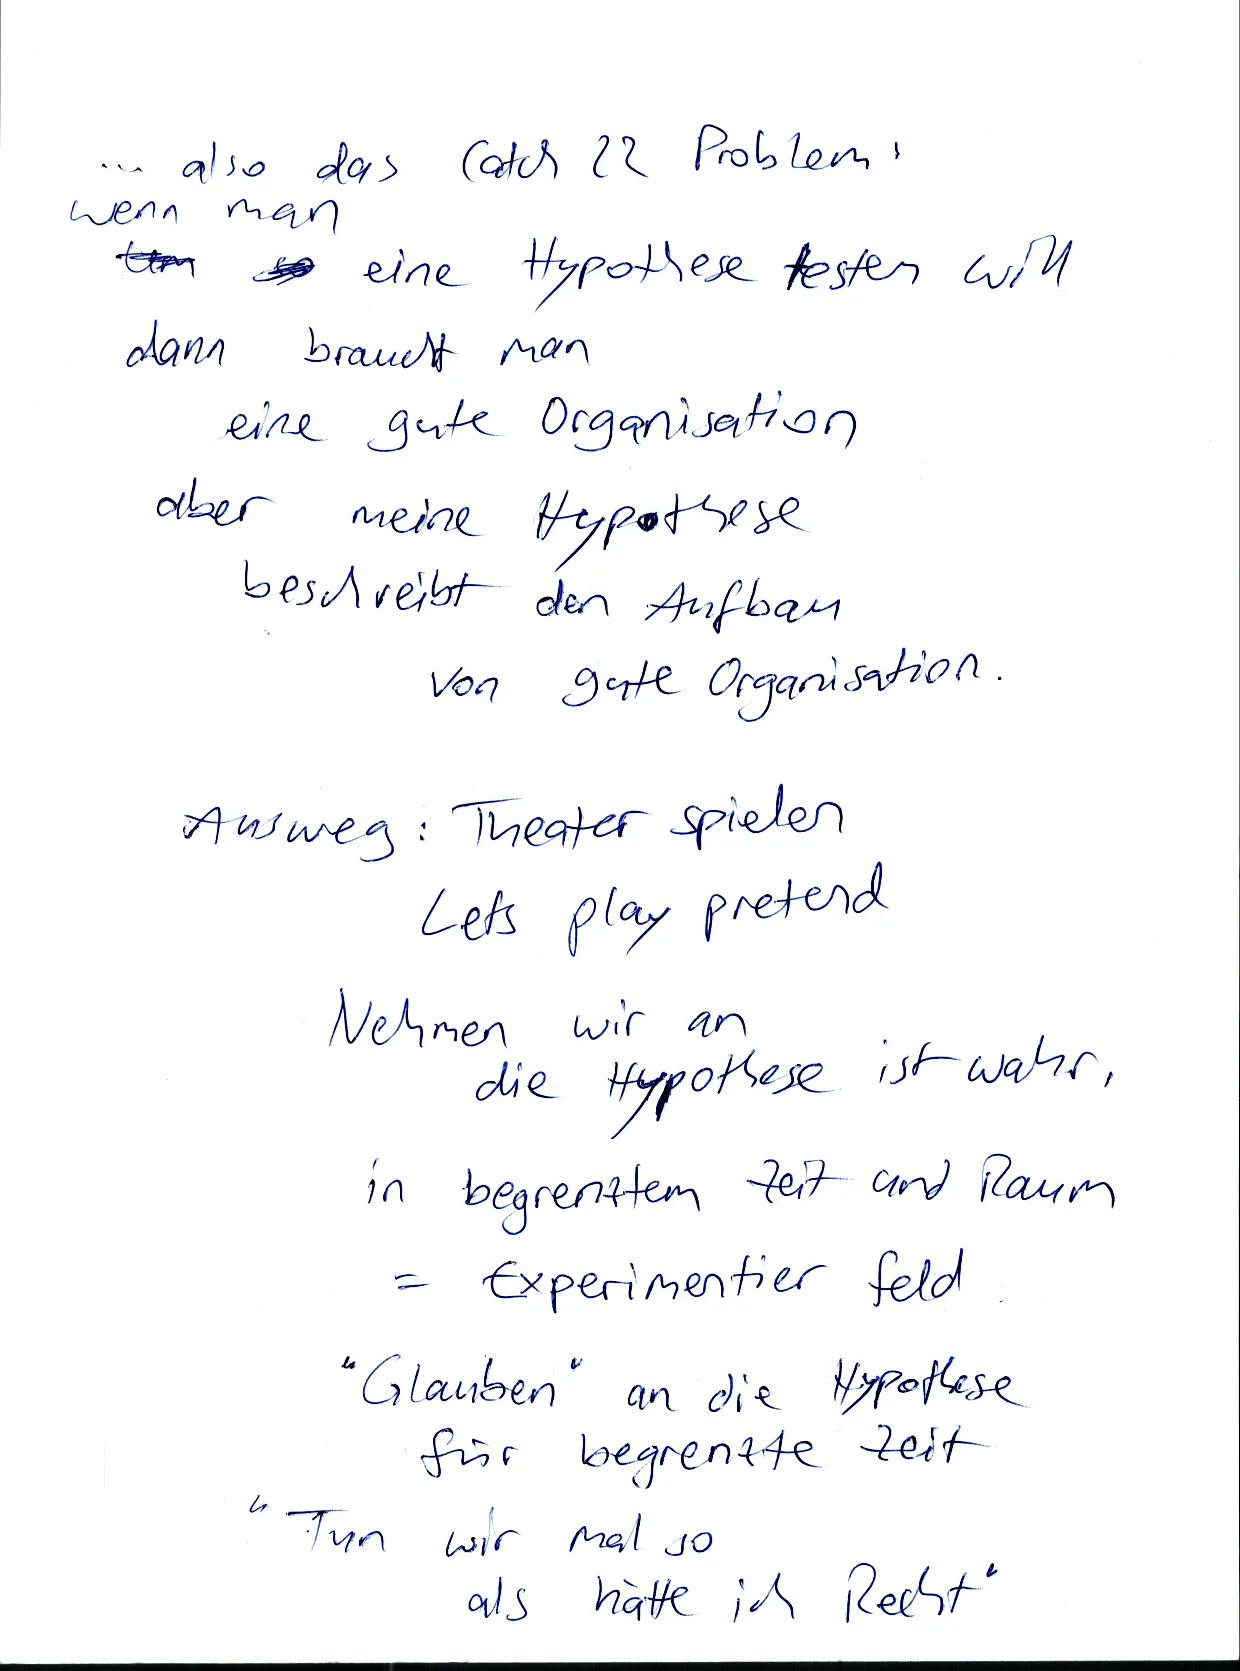 ... also das Catch 22 Problem:
wenn man
eine Hypothese testen will
dann braucht man
eine gute Organisation
aber meine Hypothese
beschreibt den Aufbau
von gute Organisation.
Ausweg: Theater spielen
Lets play pretend
Nehmen wir an
die Hypothese ist wahr,
in begrenztem Zeit und Raum
= Experimentier feld
"Glauben" an die Hypothese
für begrenzte Zeit
"Tun wir mal so
als hätte ich Recht"